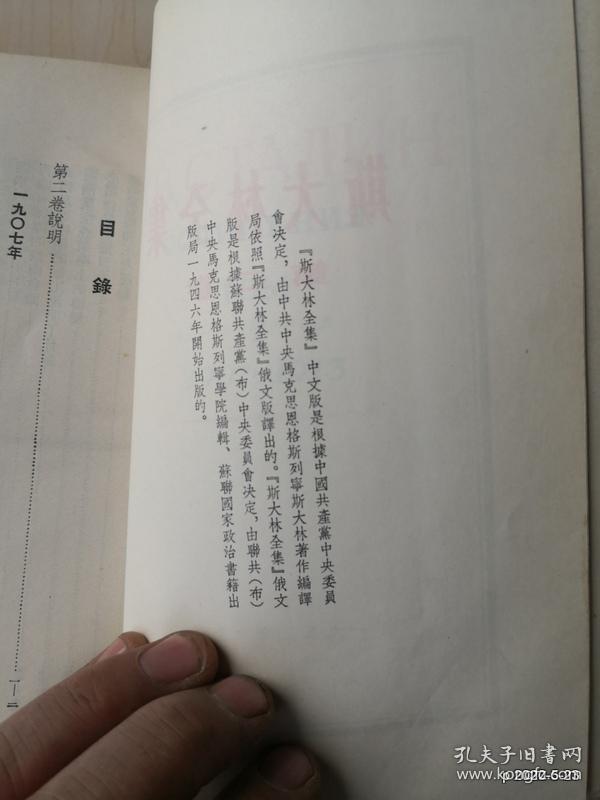 『斯大林全集』中文版是根據中國共產黨中央委員
會决定，由中共中央馬克思恩格斯列寧斯大林著作編譯
局依照『斯大林全集』俄文版譯出的。『斯大林全集』俄文
版是根據蘇聯共產黨（布）中央委員會决定，由聯共（布）
中央馬克思恩格斯列寧學院編輯、蘇聯國家政治書籍出
版局一九四六年開始出版的。
目錄
第二卷說明……………………一—二
一九〇七年
斯大林全集
孔夫子旧書网
www.kongfz.com
p 2022-5-23